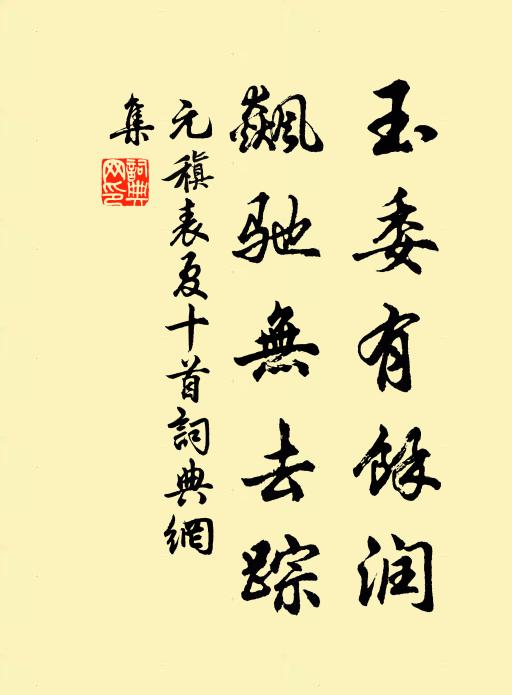 玉委有餘润
飆驰無去踪
元稹表夏十首詞典網
集
詞典网印